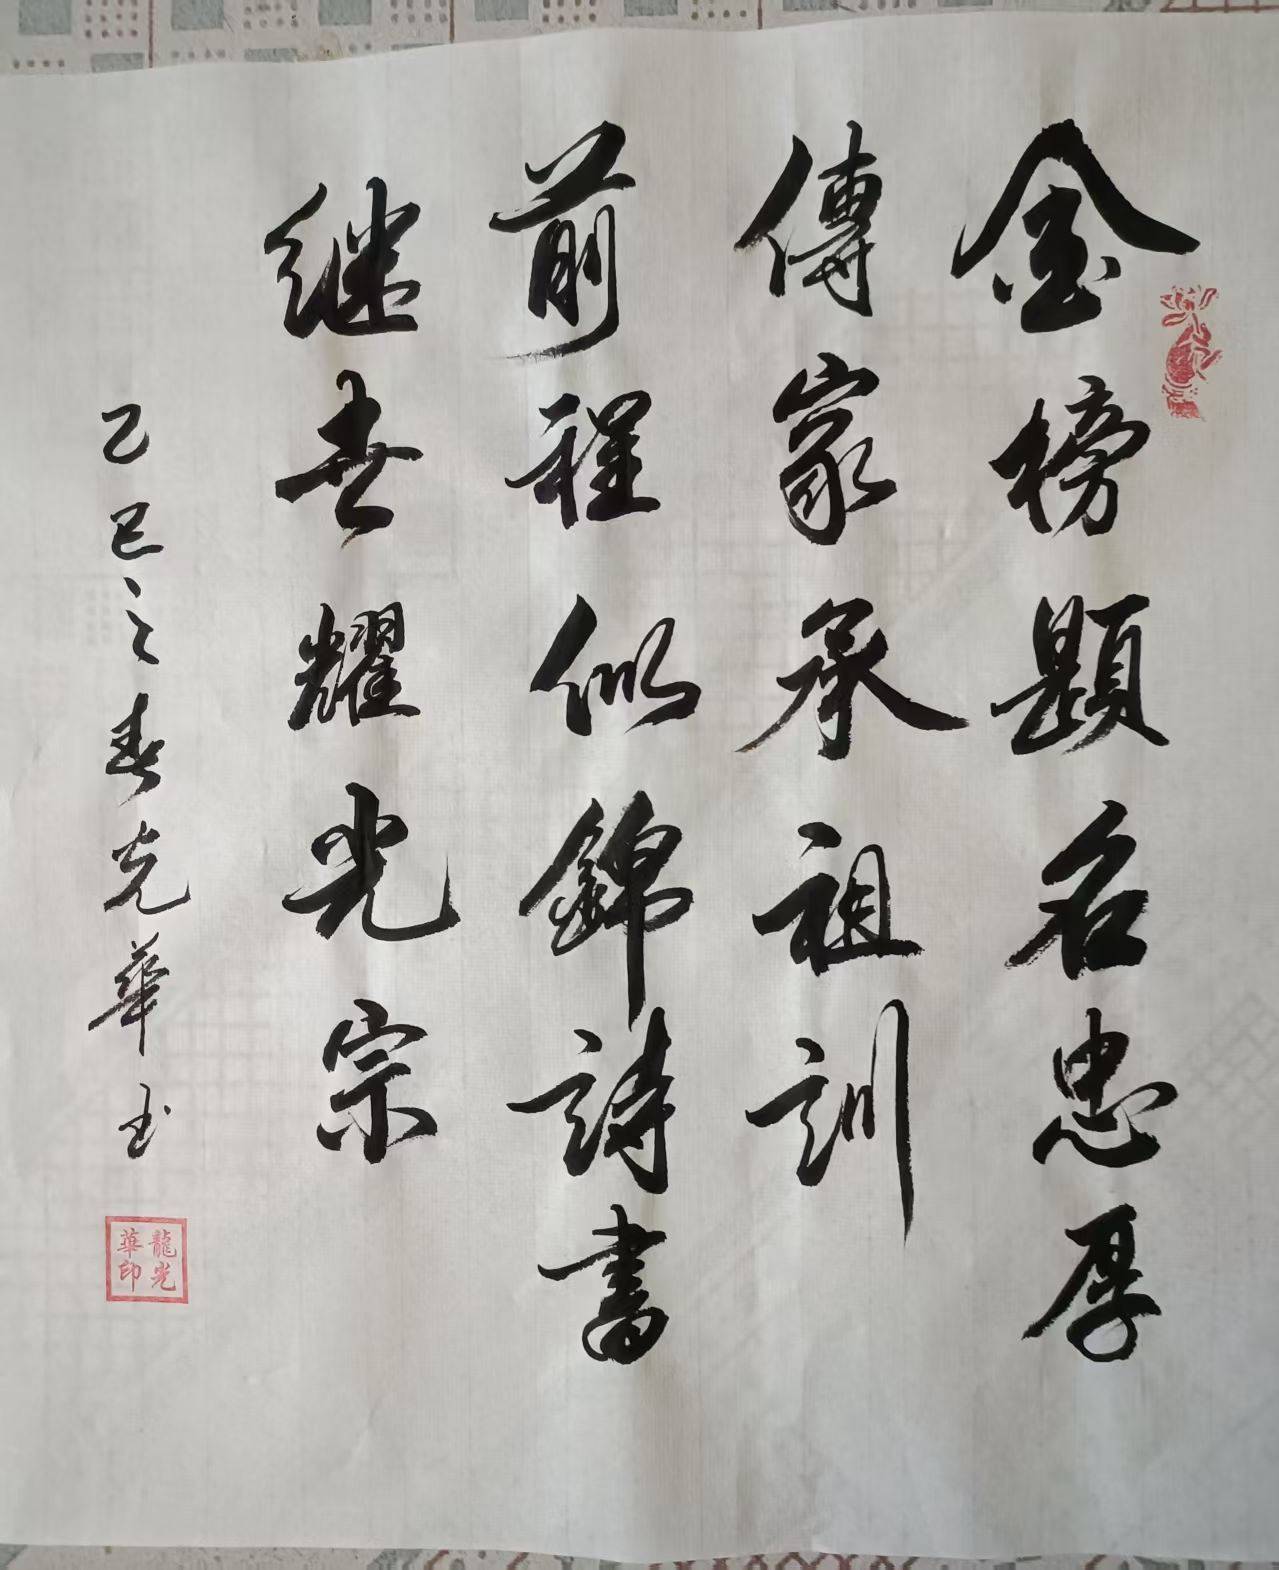 金榜題名忠厚
傳家承祖訓
前程似錦詩書
继世耀光宗
乙巳之春光華书
龍光
華印